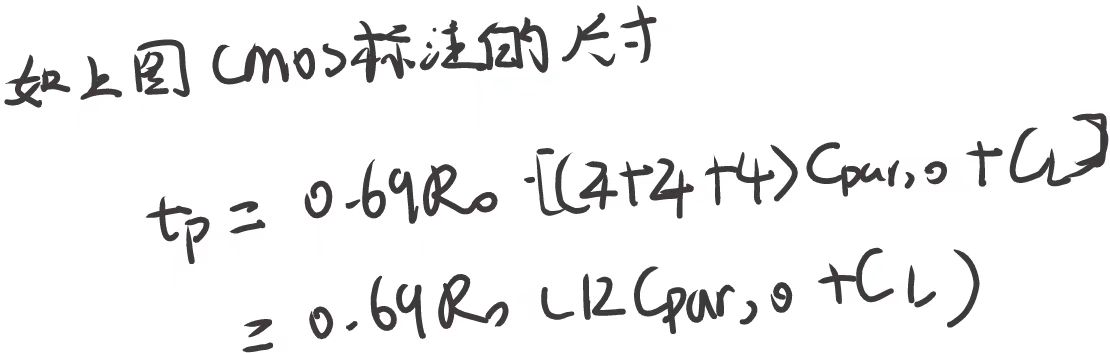 如上图CMOS标注的尺寸
tp = 0.69R₀ ·[(4+4+4)Cpar,₀ + CL]
= 0.69R₀ (12Cpar,₀ + CL)